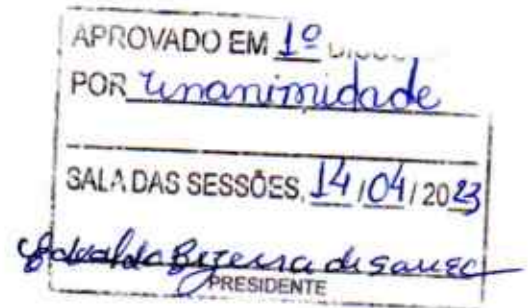 APROVADO EM 1º
POR Unanimidade
SALA DAS SESSÕES, 14/04/2023
Bezerra de
PRESIDENTE